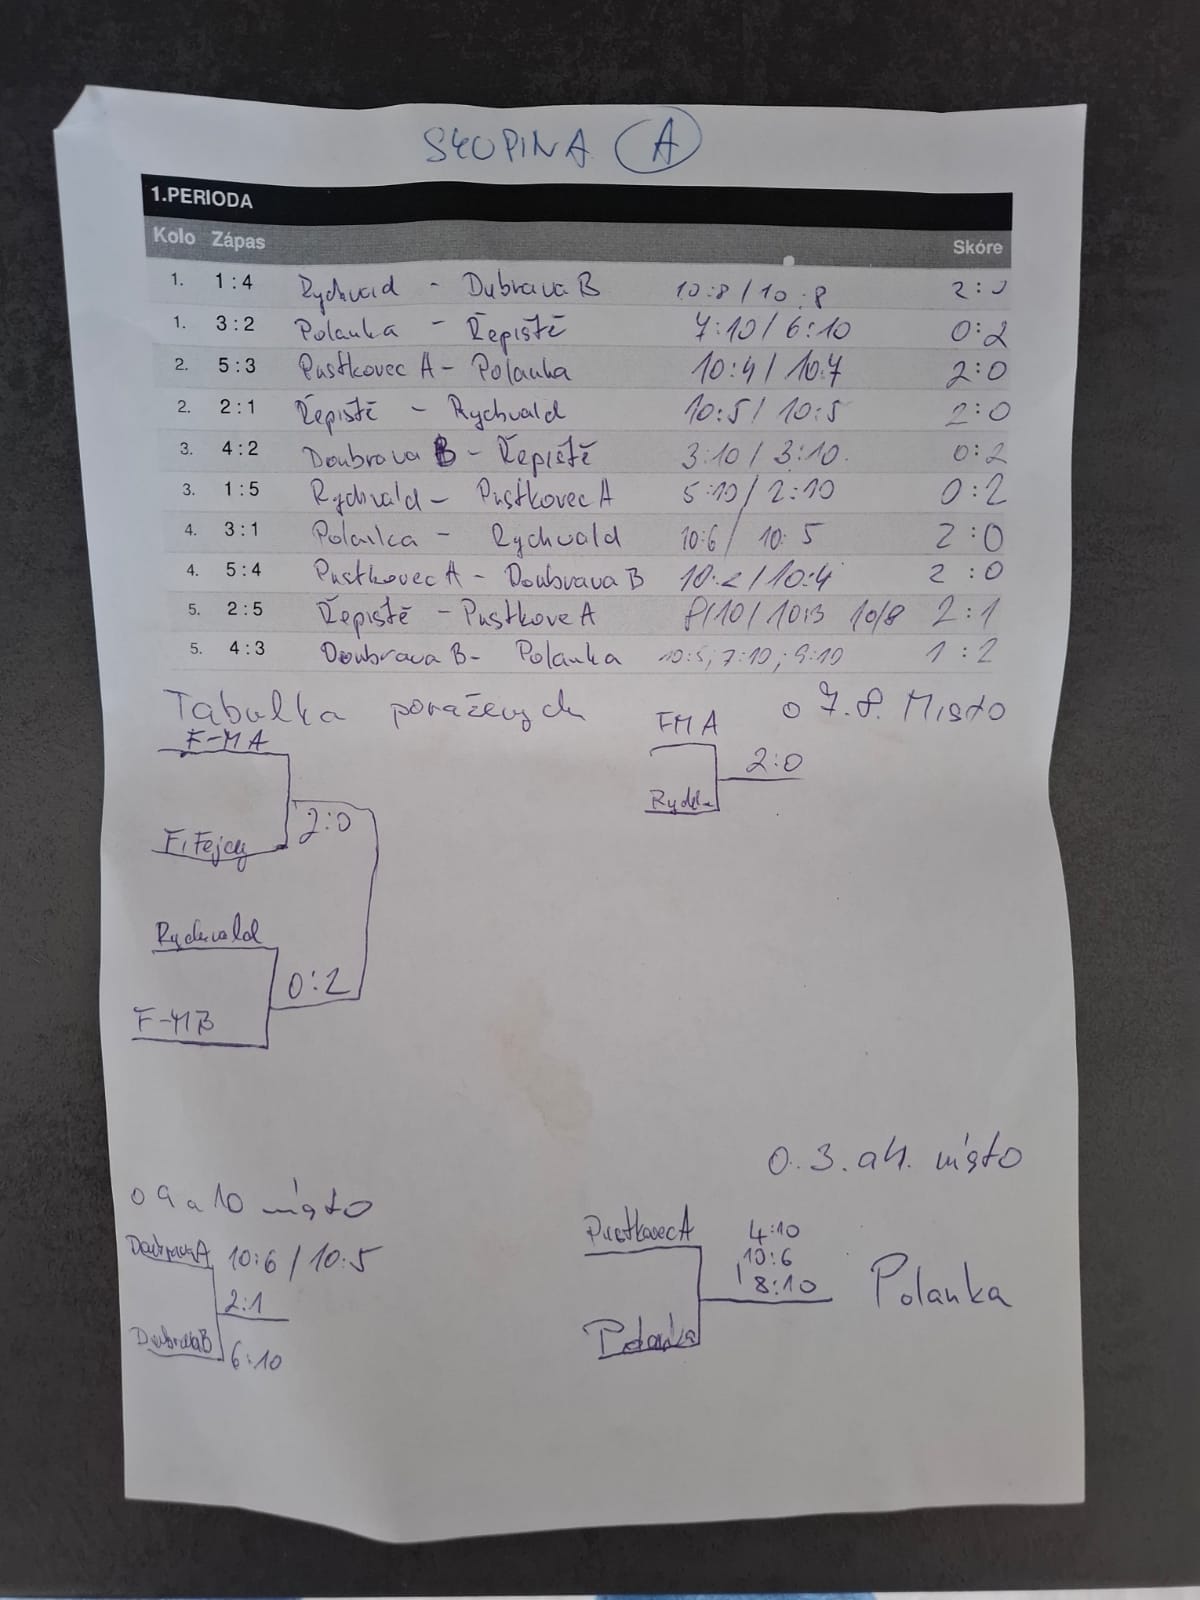 SKUPINA A
1.PERIODA
Kolo Zápas Skóre
1. 1:4 Rychvald - Dubrava B 10:8/10:8 2:0
1. 3:2 Polanka - Řepiště 7:10/6:10 0:2
2. 5:3 Pustkovec A - Polanka 10:4/10:7 2:0
2. 2:1 Řepiště - Rychvald 10:5/10:5 2:0
3. 4:2 Doubrava B - Řepiště 3:10/3:10. 0:2
3. 1:5 Rychvald - Pustkovec A 5:10/2:10 0:2
4. 3:1 Polanka - Rychvald 10:6/10:5 2:0
4. 5:4 Pustkovec A - Doubrava B 10:2/10:4 2:0
5. 2:5 Řepiště - Pustkove A 8/10/10:3 10/8 2:1
5. 4:3 Doubrava B - Polanka 10:5;7:10;9:10 1:2
Tabulka poražených
F-M A
2:0
Rychvald
0:2
F-M B
o 7.8. Místo
FM A
2:0
o 9 a 10 místo
Doubrava A 10:6/10:5
2:1
Doubrava B 6:10
o. 3. a 4. místo
Pustkovec A 4:10
10:6
8:10
Polanka
Polanka